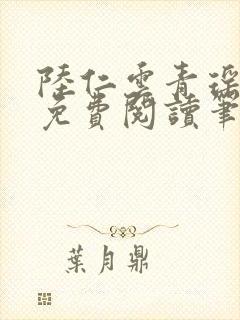 陸仁雲青瑤
免費閱讀筆
葉月鼎